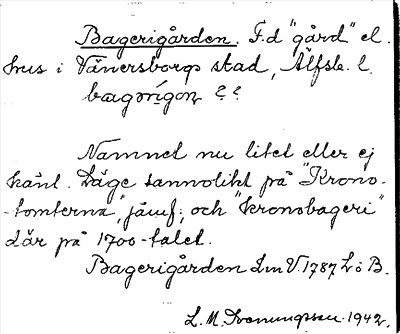 Bagerigården. F.d "gård" el.
hus i Vänersborgs stad, Älfsb. l.
Namnet nu litet eller ej
känt. Läge sannolikt på "Krono-
-tomterna", jämf. och "kronobageri"
där på 1700-talet.
Bagerigården Lm V. 1787 L ö B.
L. M. Svenungsson 1942.